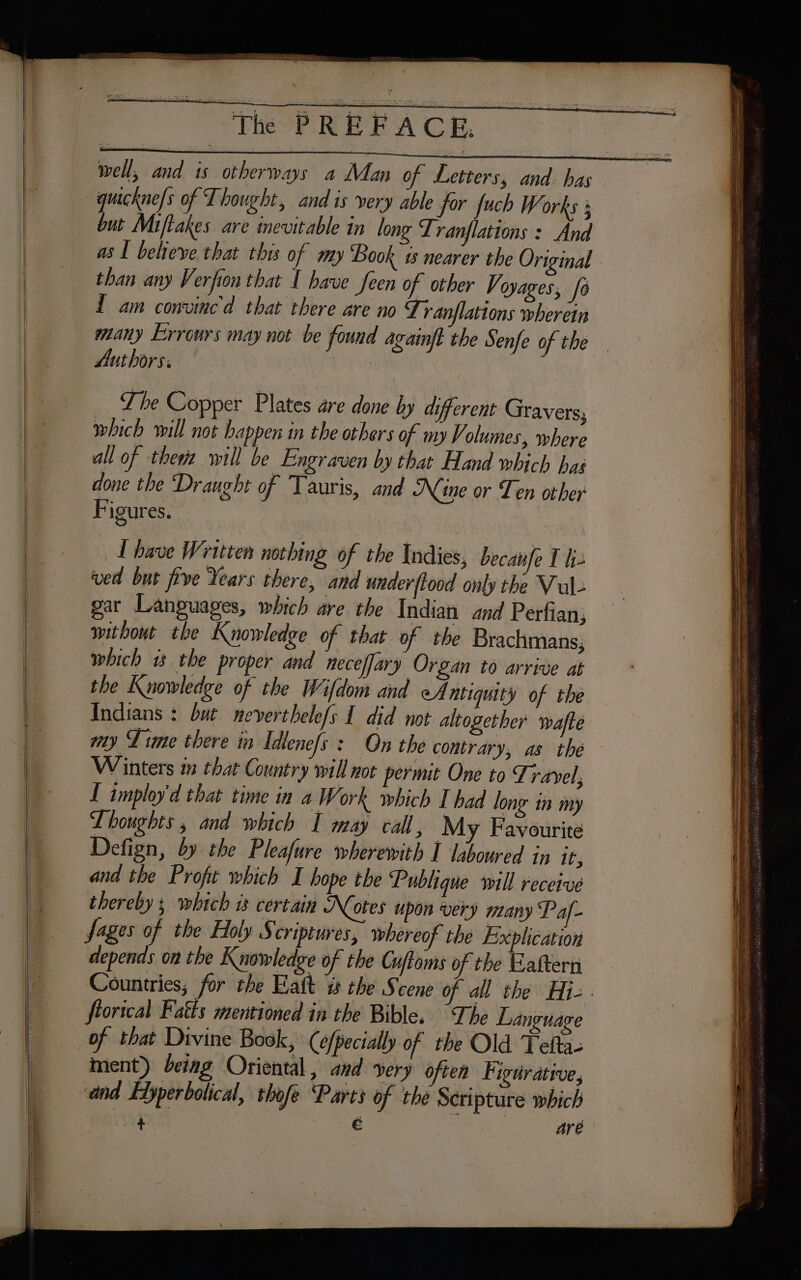 The PREFACE.
well, and is otherways a Man of Letters, and has
quickneſs of Thought, and is very able for ſuch Works ;
but Miſtakes are inevitable in long Tranſlations : And
as I believe that this of my Book is nearer the Original
than any Verſion that I have ſeen of other Voyages, ſo
I am convinc'd that there are no Tranſlations wherein
many Errours may not be found againſt the Senſe of the
Authors.
The Copper Plates are done by different Gravers,
which will not happen in the others of my Volumes, where
all of them will be Engraven by that Hand which has
done the Draught of Tauris, and Nine or Ten other
Figures.
I have Written nothing of the Indies, becauſe I li-
ved but five Years there, and underſtood only the Vul-
gar Languages, which are the Indian and Perſian,
without the Knowledge of that of the Brachmans,
which is the proper and neceſſary Organ to arrive at
the Knowledge of the Wiſdom and Antiquity of the
Indians : but nevertheleſs I did not altogether waſte
my Time there in Idleneſs : On the contrary, as the
Winters in that Country will not permit One to Travel,
I imploy'd that time in a Work which I had long in my
Thoughts, and which I may call, My Favourite
Deſign, by the Pleaſure wherewith I laboured in it,
and the Profit which I hope the Publique will receive
thereby ; which is certain Notes upon very many Paſ-
ſages of the Holy Scriptures, whereof the Explication
depends on the Knowledge of the Cuſtoms of the Eaſtern
Countries, for the Eaſt is the Scene of all the Hi-
ſtorical Facts mentioned in the Bible. The Language
of that Divine Book, (eſpecially of the Old Teſta-
ment) being Oriental, and very often Figurative,
and Hyperbolical, thoſe Parts of the Scripture which
† e are